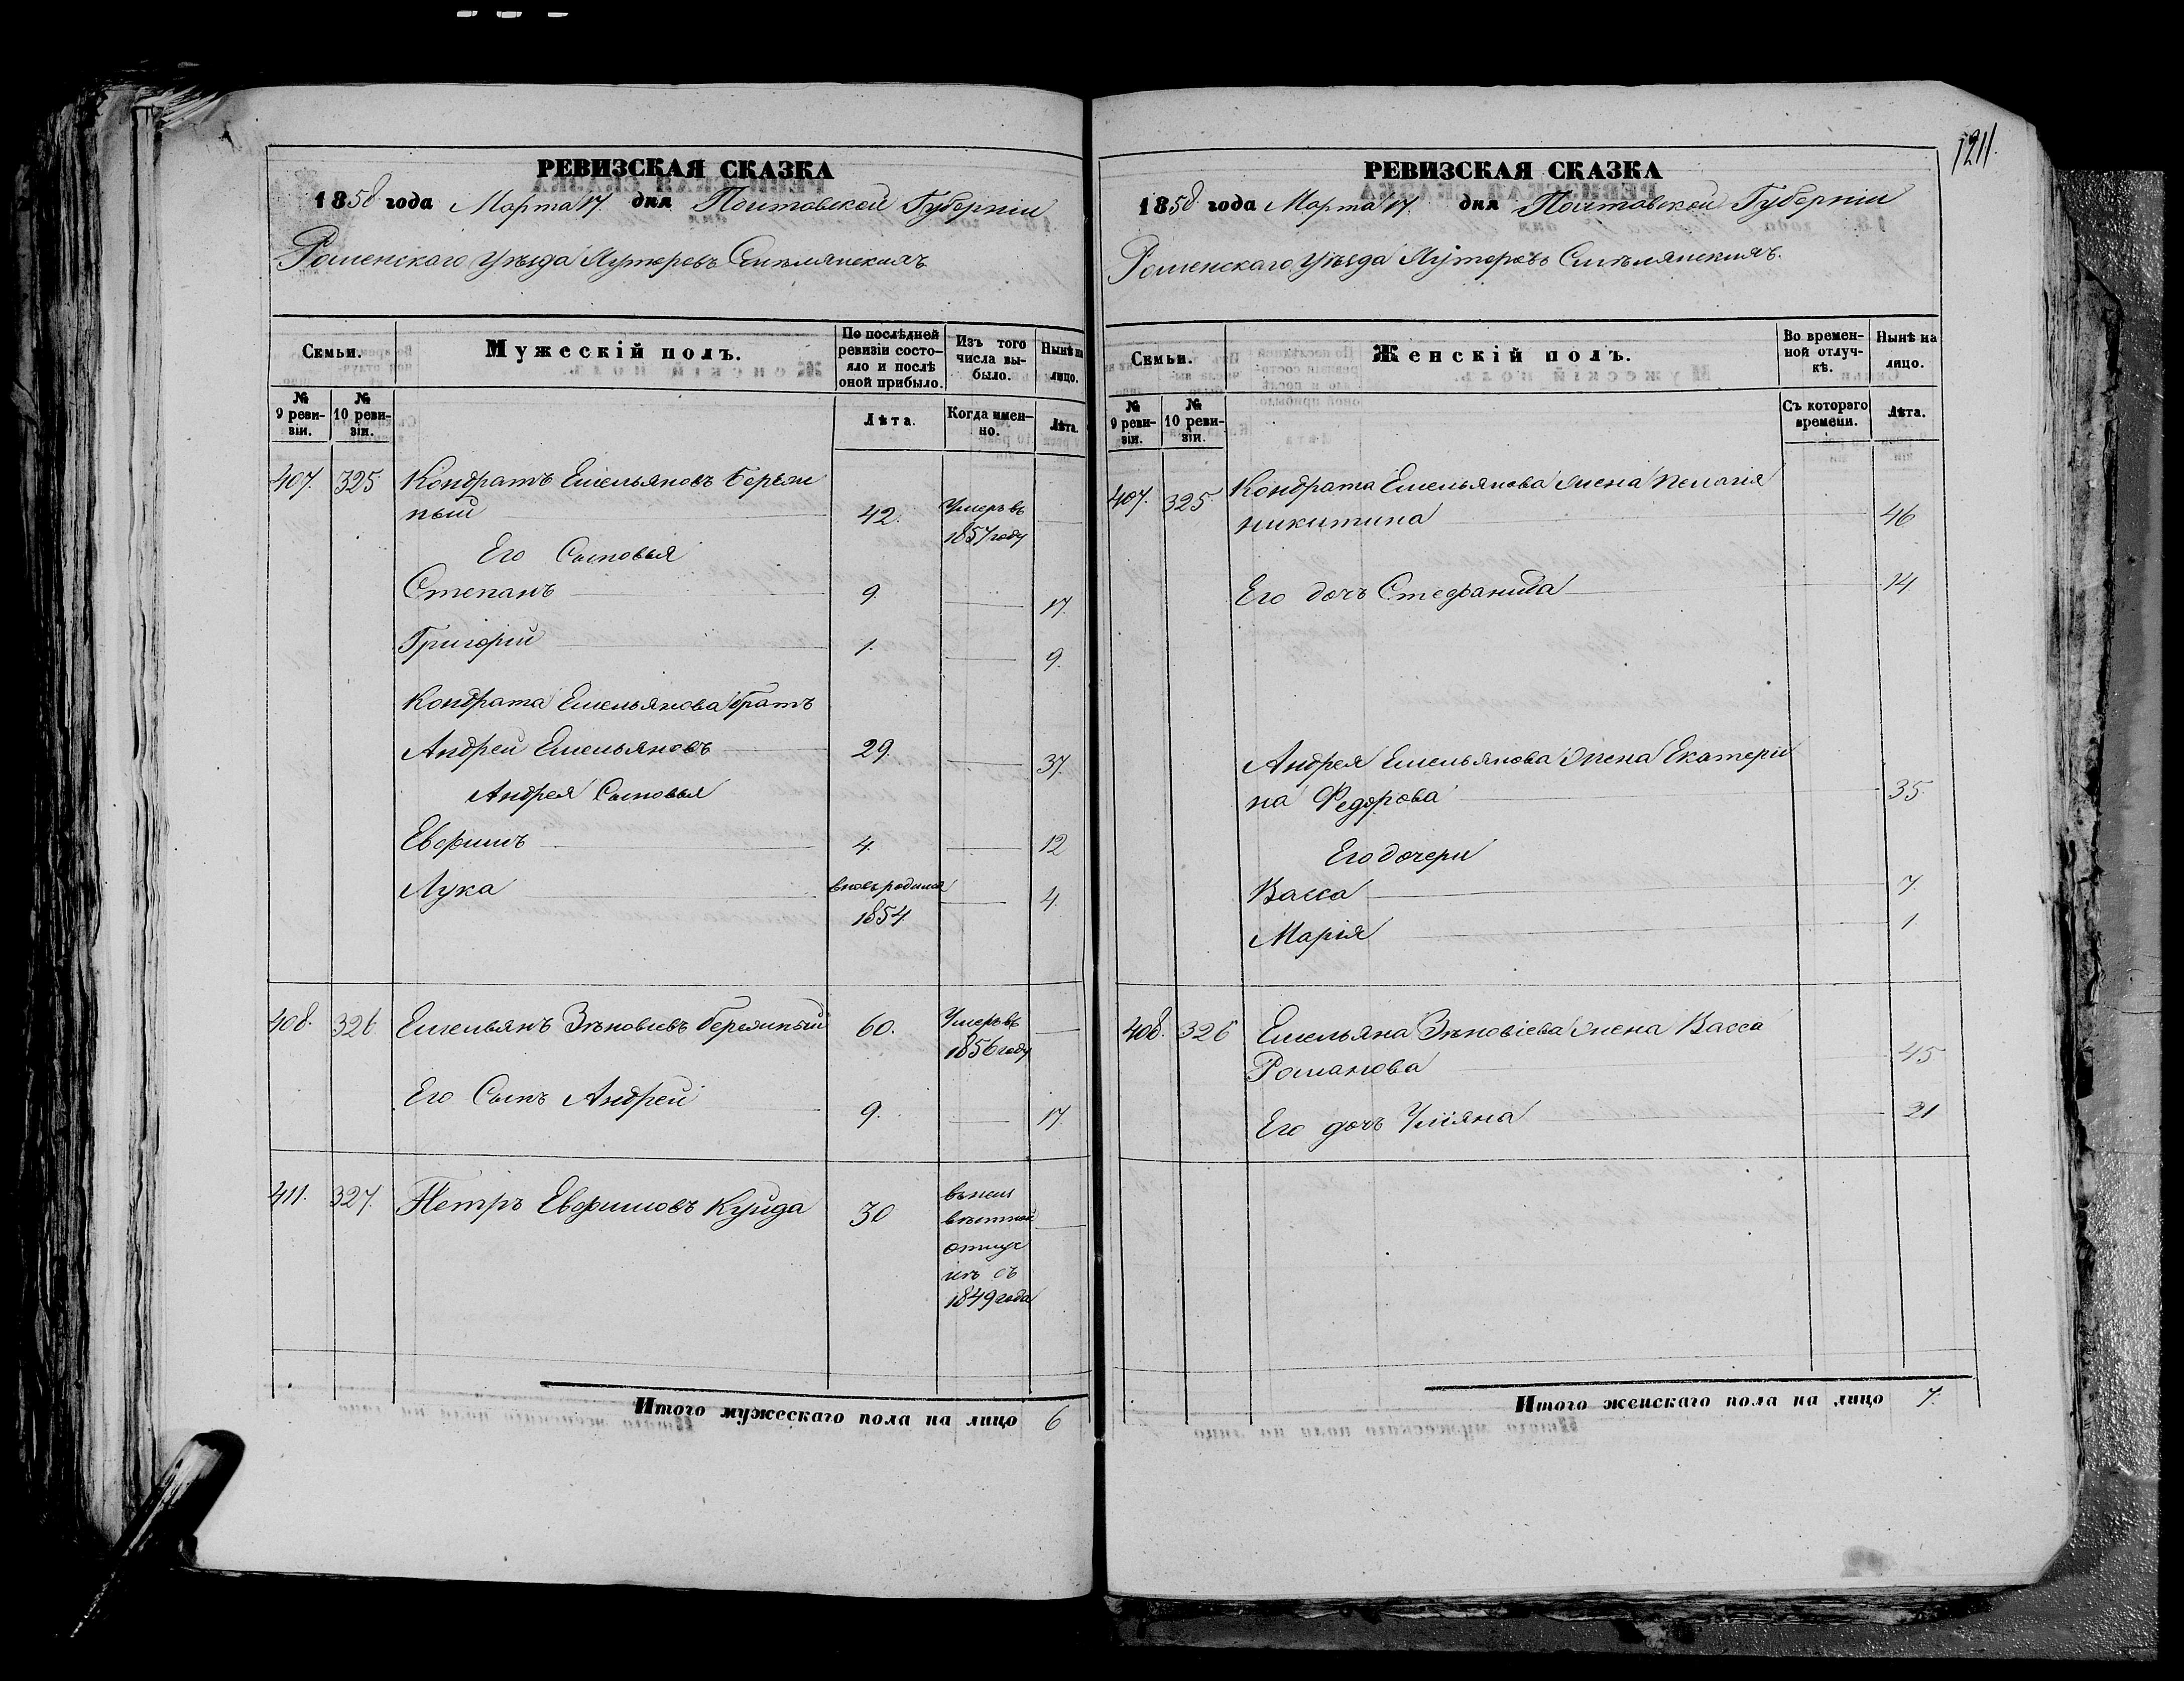 1211.
РЕВИЗСКАЯ СКАЗКА
1858 года Марта 17. дня Полтавской Губерніи
Роменскаго Уѣзда Хуторовъ Смѣлянскихъ
Семьи.
Мужескій полъ.
По послѣдней ревизіи состояло и послѣ оной прибыло.
Изъ того числа выбыло.
Нынѣ на лицо.
№ 9 ревизіи.
№ 10 ревизіи.
Лѣта.
Когда именно.
Лѣта.
407. 325 Кондратъ Емельяновъ Бережный 42. Умеръ въ 1857 году
Его Сыновья
Степанъ 9. 17.
Григорій 1. 9.
Кондрата Емельянова братъ
Андрей Емельяновъ 29. 37.
Андрея Сыновья
Евфимъ 4. 12
Лука вновь родился 1854 4.
408. 326. Емельянъ Зѣновіевъ Бережный 60. Умеръ въ 1856 году
Его Сынъ Андрей 9. 17.
411. 327. Петръ Евфимовъ Куйда 30 съ 1849 года
Итого мужескаго пола на лицо 6
РЕВИЗСКАЯ СКАЗКА
1858 года Марта 17. дня Полтавской Губерніи
Роменскаго Уѣзда Хуторовъ Смѣлянскихъ.
Семьи.
Женскій полъ.
Во временной отлучкѣ.
Нынѣ на лицо.
№ 9 ревизіи.
№ 10 ревизіи.
Съ котораго времени.
Лѣта.
407. 325. Кондрата Емельянова жена Пелагія
никитина 46
Его дочь Стефанида 14.
Андрея Емельянова жена Екатери
на Федорова 35.
Его дочери
Васса 7.
Марія 1
408. 326 Емельяна Зѣновіева жена Васса
Романова 45
Его дочь Уліяна 21
Итого женскаго пола на лицо 7.